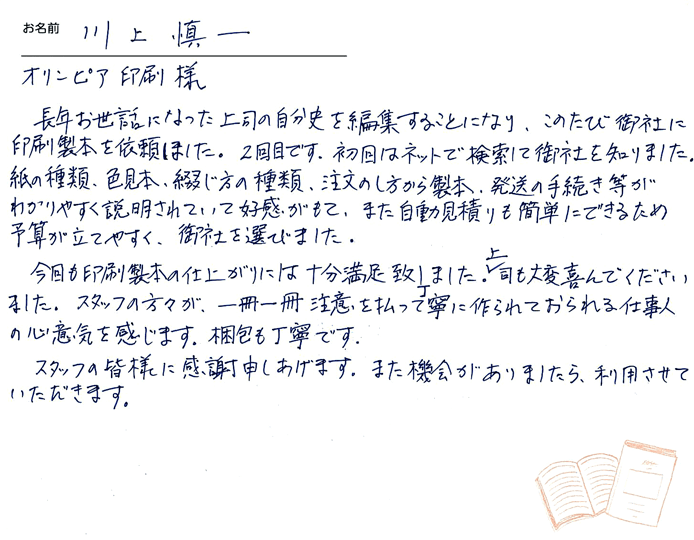 お名前 川上 慎一
オリンピア印刷 様
長年お世話になった上司の自分史を編集することになり、このたび御社に
印刷製本を依頼しました。2回目です。初回はネットで検索して御社を知りました。
紙の種類、色見本、綴じ方の種類、注文のし方から製本、発送の手続き等が
わかりやすく説明されていて好感がもて、また自動見積りも簡単にできるため
予算が立てやすく、御社を選びました。
今回も印刷製本の仕上がりには十分満足致しました。上司も大変喜んでください
ました。スタッフの方々が、一冊一冊注意を払って丁寧に作られておられる仕事人
の心意気を感じます。梱包も丁寧です。
スタッフの皆様に感謝申しあげます。また機会がありましたら、利用させて
いただきます。